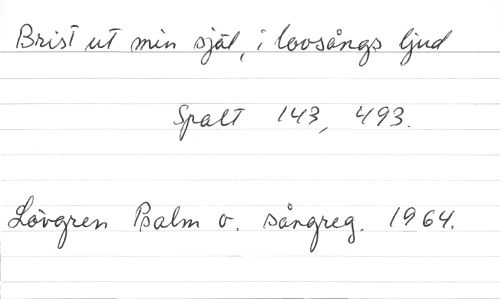 Brist ut min själ, i lovsångs ljud
Spalt 143, 493.
Lövgren Psalm o. sångreg. 1964.